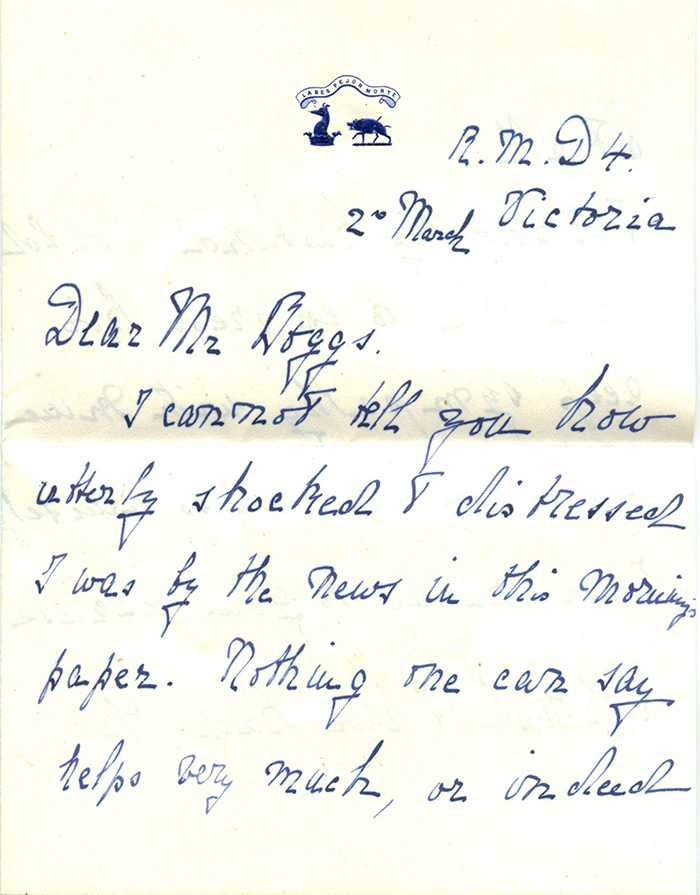 LABES PEJOR MORTE
R. M. D 4.
2º March Victoria
Dear Mr Boggs.
I cannot tell you how
utterly shocked & distressed
I was by the news in this mornings
paper. Nothing one can say
helps very much, or indeed